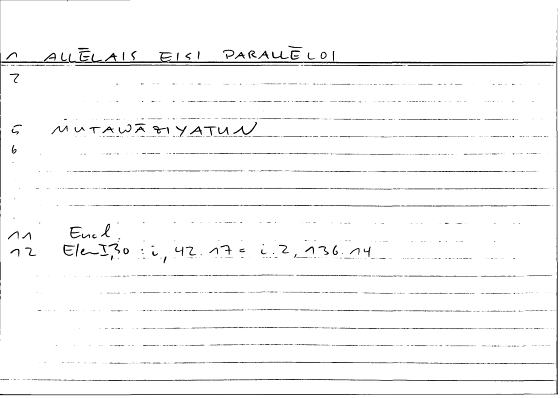 1 ALLĒLAIS EISI PARALLĒLOI
2
5 MUTAWĀZIYATUN
6
11 Eucl.
12 Elem I,30 : i, 42.17 = i.2, 136.14